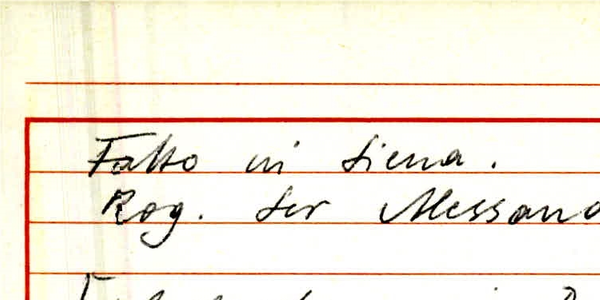 Fatto in Siena.
Rog. Ser Alessand